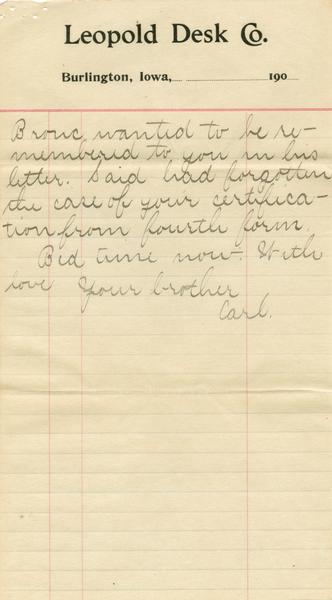 Leopold Desk Co.
Burlington, Iowa, 190
Bronc wanted to be re-
membered to you in his
letter. Said had forgotten
the case of your certifica-
tion from fourth form.
Bed time now. With
love Your brother
Carl.